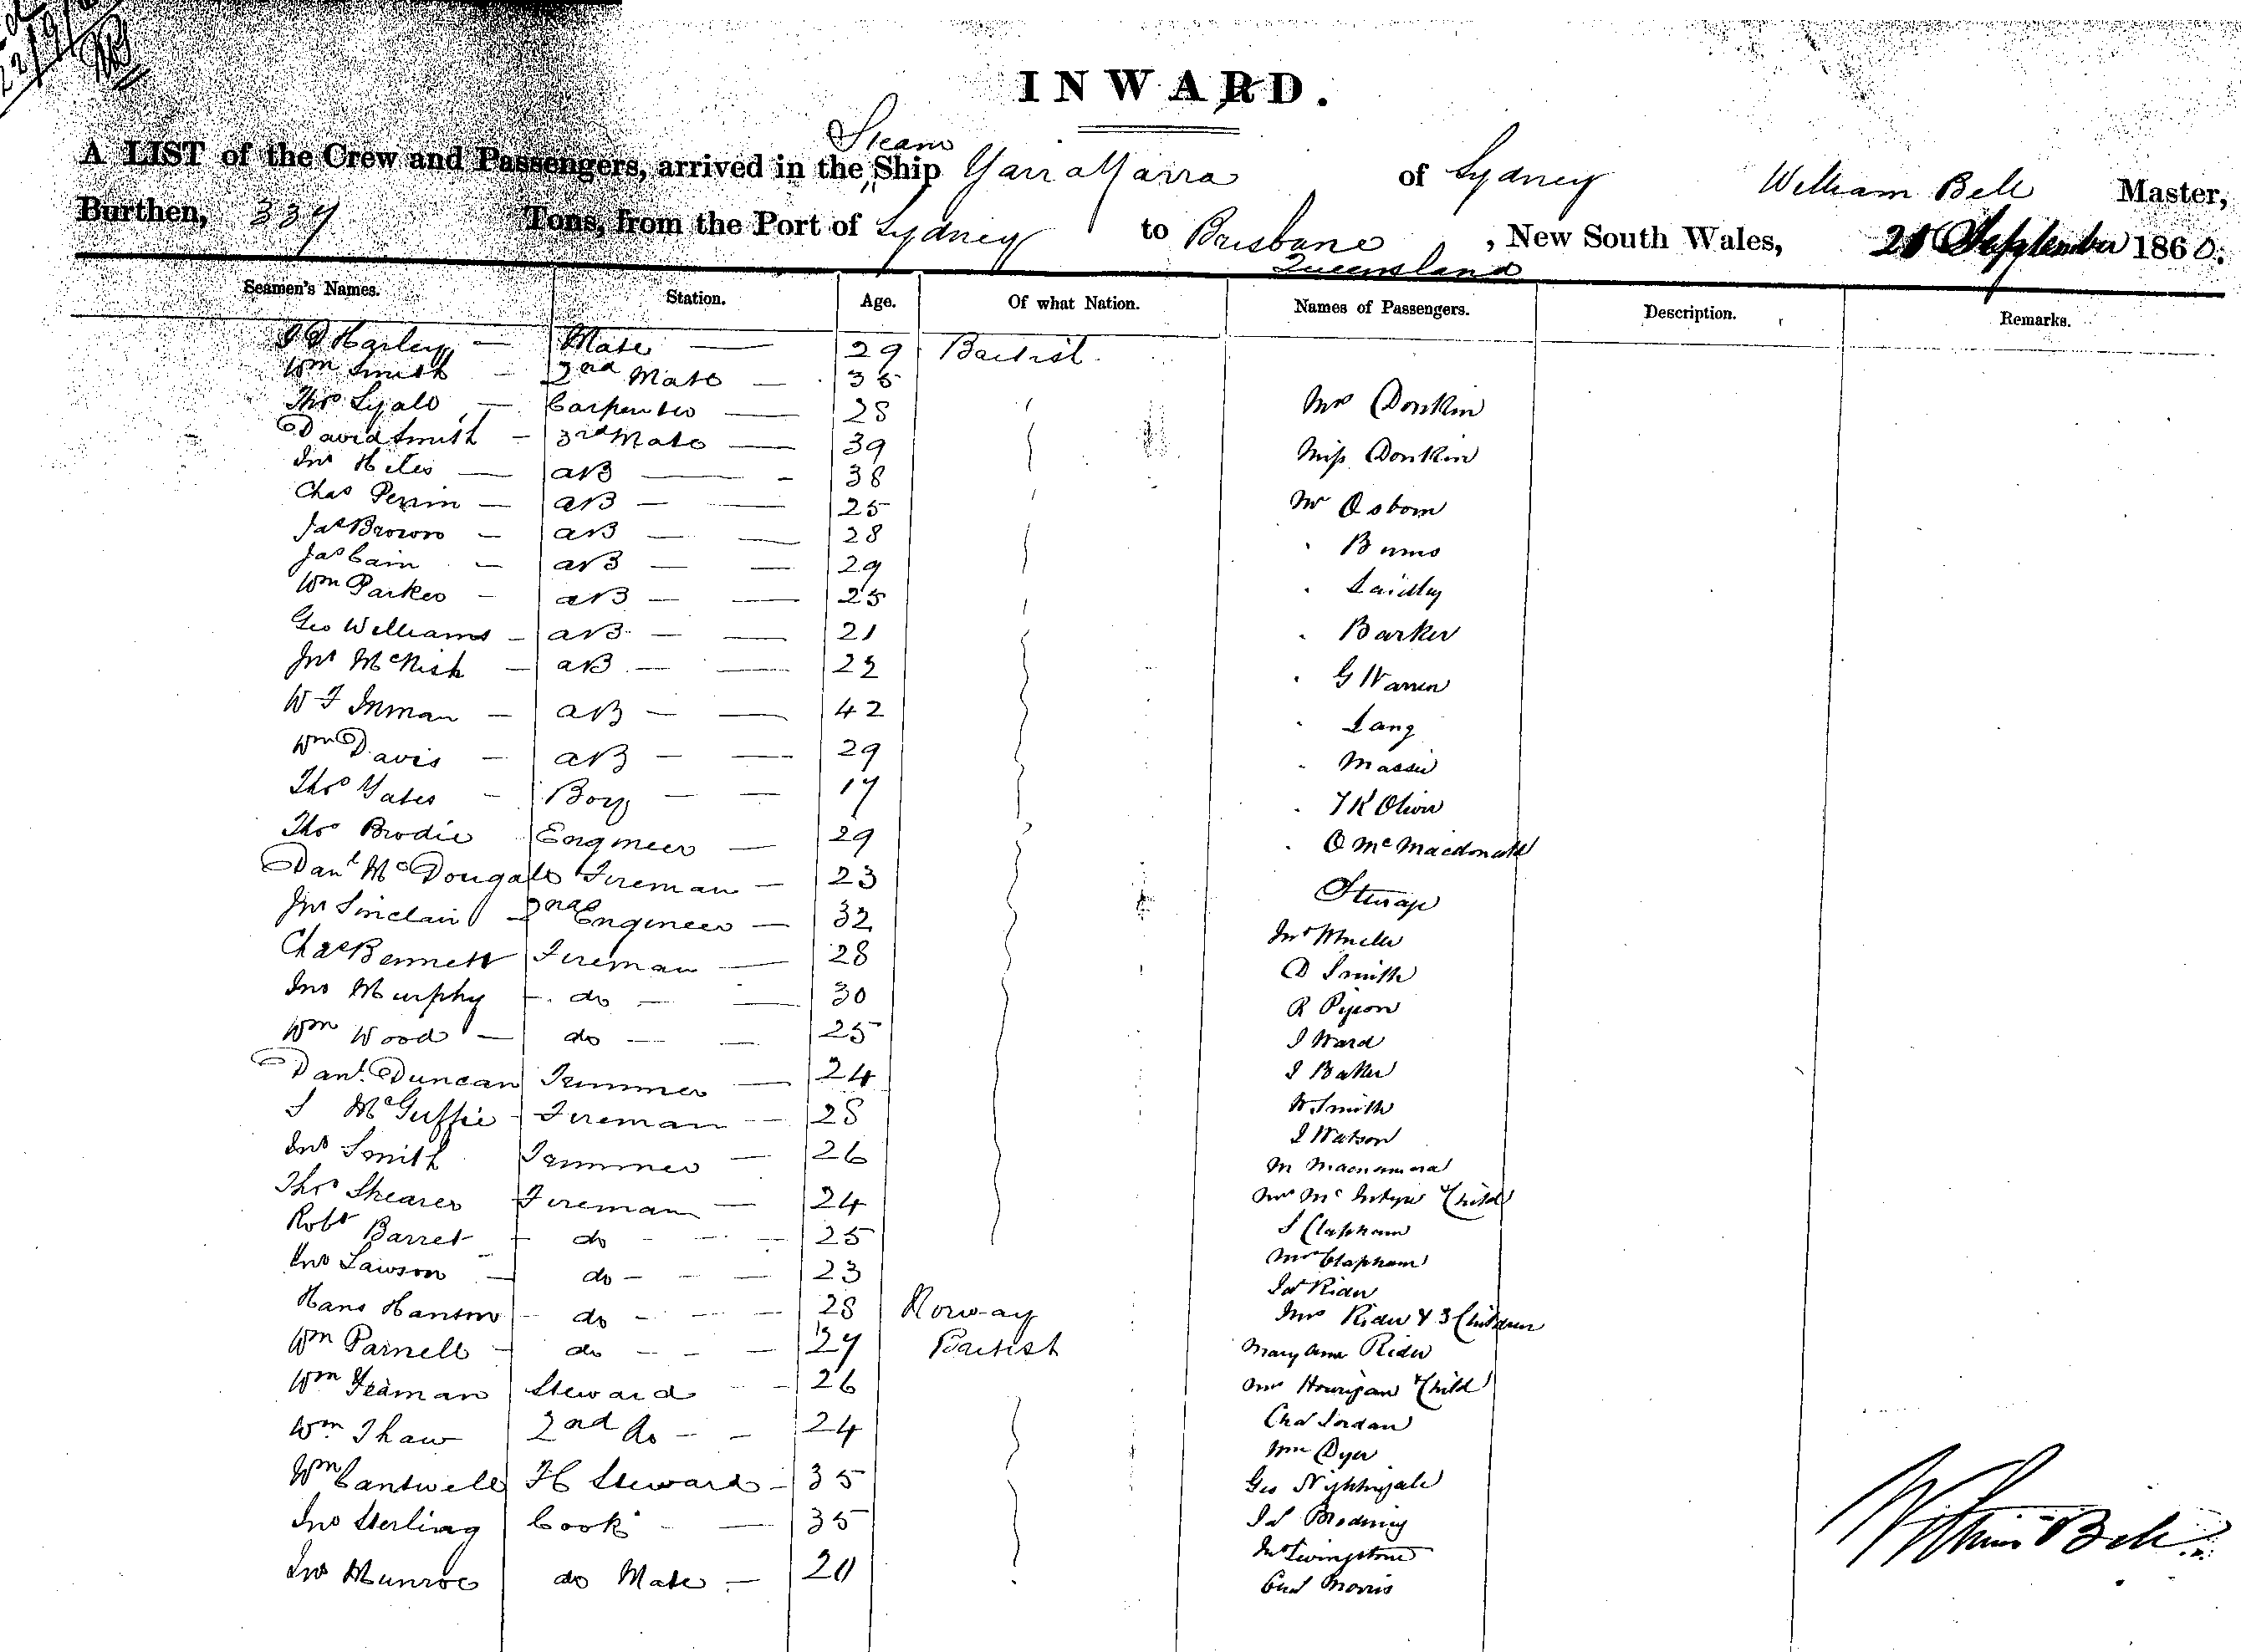 22/9/
INWARD.
Steam
A LIST of the Crew and Passengers, arrived in the Ship Yarra Yarra of Sydney William Bell Master,
Burthen, 337 Tons, from the Port of Sydney to Brisbane, New South Wales, 21 September 1860.
Queensland
Seamen's Names. Station. Age. Of what Nation. Names of Passengers. Description. Remarks.
Harley — Mate — 29 British
Wm Smith — 2nd Mate — 35
Thos Lyall — Carpenter — 28 Mrs Donkin
David Smith — 3rd Mate — 39 Miss Donkin
Jno Hiles — AB — 38
Chas Perrin — AB — 25 Mr Osborn
Jas Brown — AB — 28 Burns
Jas Cain — AB — 29
Wm Parker — AB — 25 Laidley
Geo Williams — AB — 21 Barker
Jno McNish — AB — 22 G Warren
W F Inman — AB — 42 Lang
Wm Davis — AB — 29 Massie
Thos Yates — Boy — 17 Oliver
Thos Brodie Engineer — 29 Macdonald
Danl McDougall Fireman — 23 Steerage
Jno Sinclair 2nd Engineer — 32
Chas Bennett Fireman — 28 D Smith
Jno Murphy do — 30 R Pigeon
Wm Wood — do — 25 J Ward
Danl Duncan Trimmer — 24 J Baker
S McGuffie Fireman — 28 W Smith
Jno Smith Trimmer — 26 J Watson
M Macnamara
Thos Shearer Fireman — 24 Mrs McIntyre & Child
Robt Barret do — 25 S Clapham
Jno Lawson — do — 23 Mrs Clapham
Jas Rider
Hans Hanson do — 28 Norway Mrs Rider & 3 Children
Wm Parnell do — 27 British Mary Ann Rider
Wm Yeaman Steward — 26 Mrs Hourigan & Child
Wm Thaw 2nd do — 24 Chas Jordan
Wm Dyer
Wm Cantwell FC Steward — 35 Geo Nightingale
Jno Sterling Cook — 35
Jno Livingstone
Jno Munroe do Mate — 20 Morris
William Bell